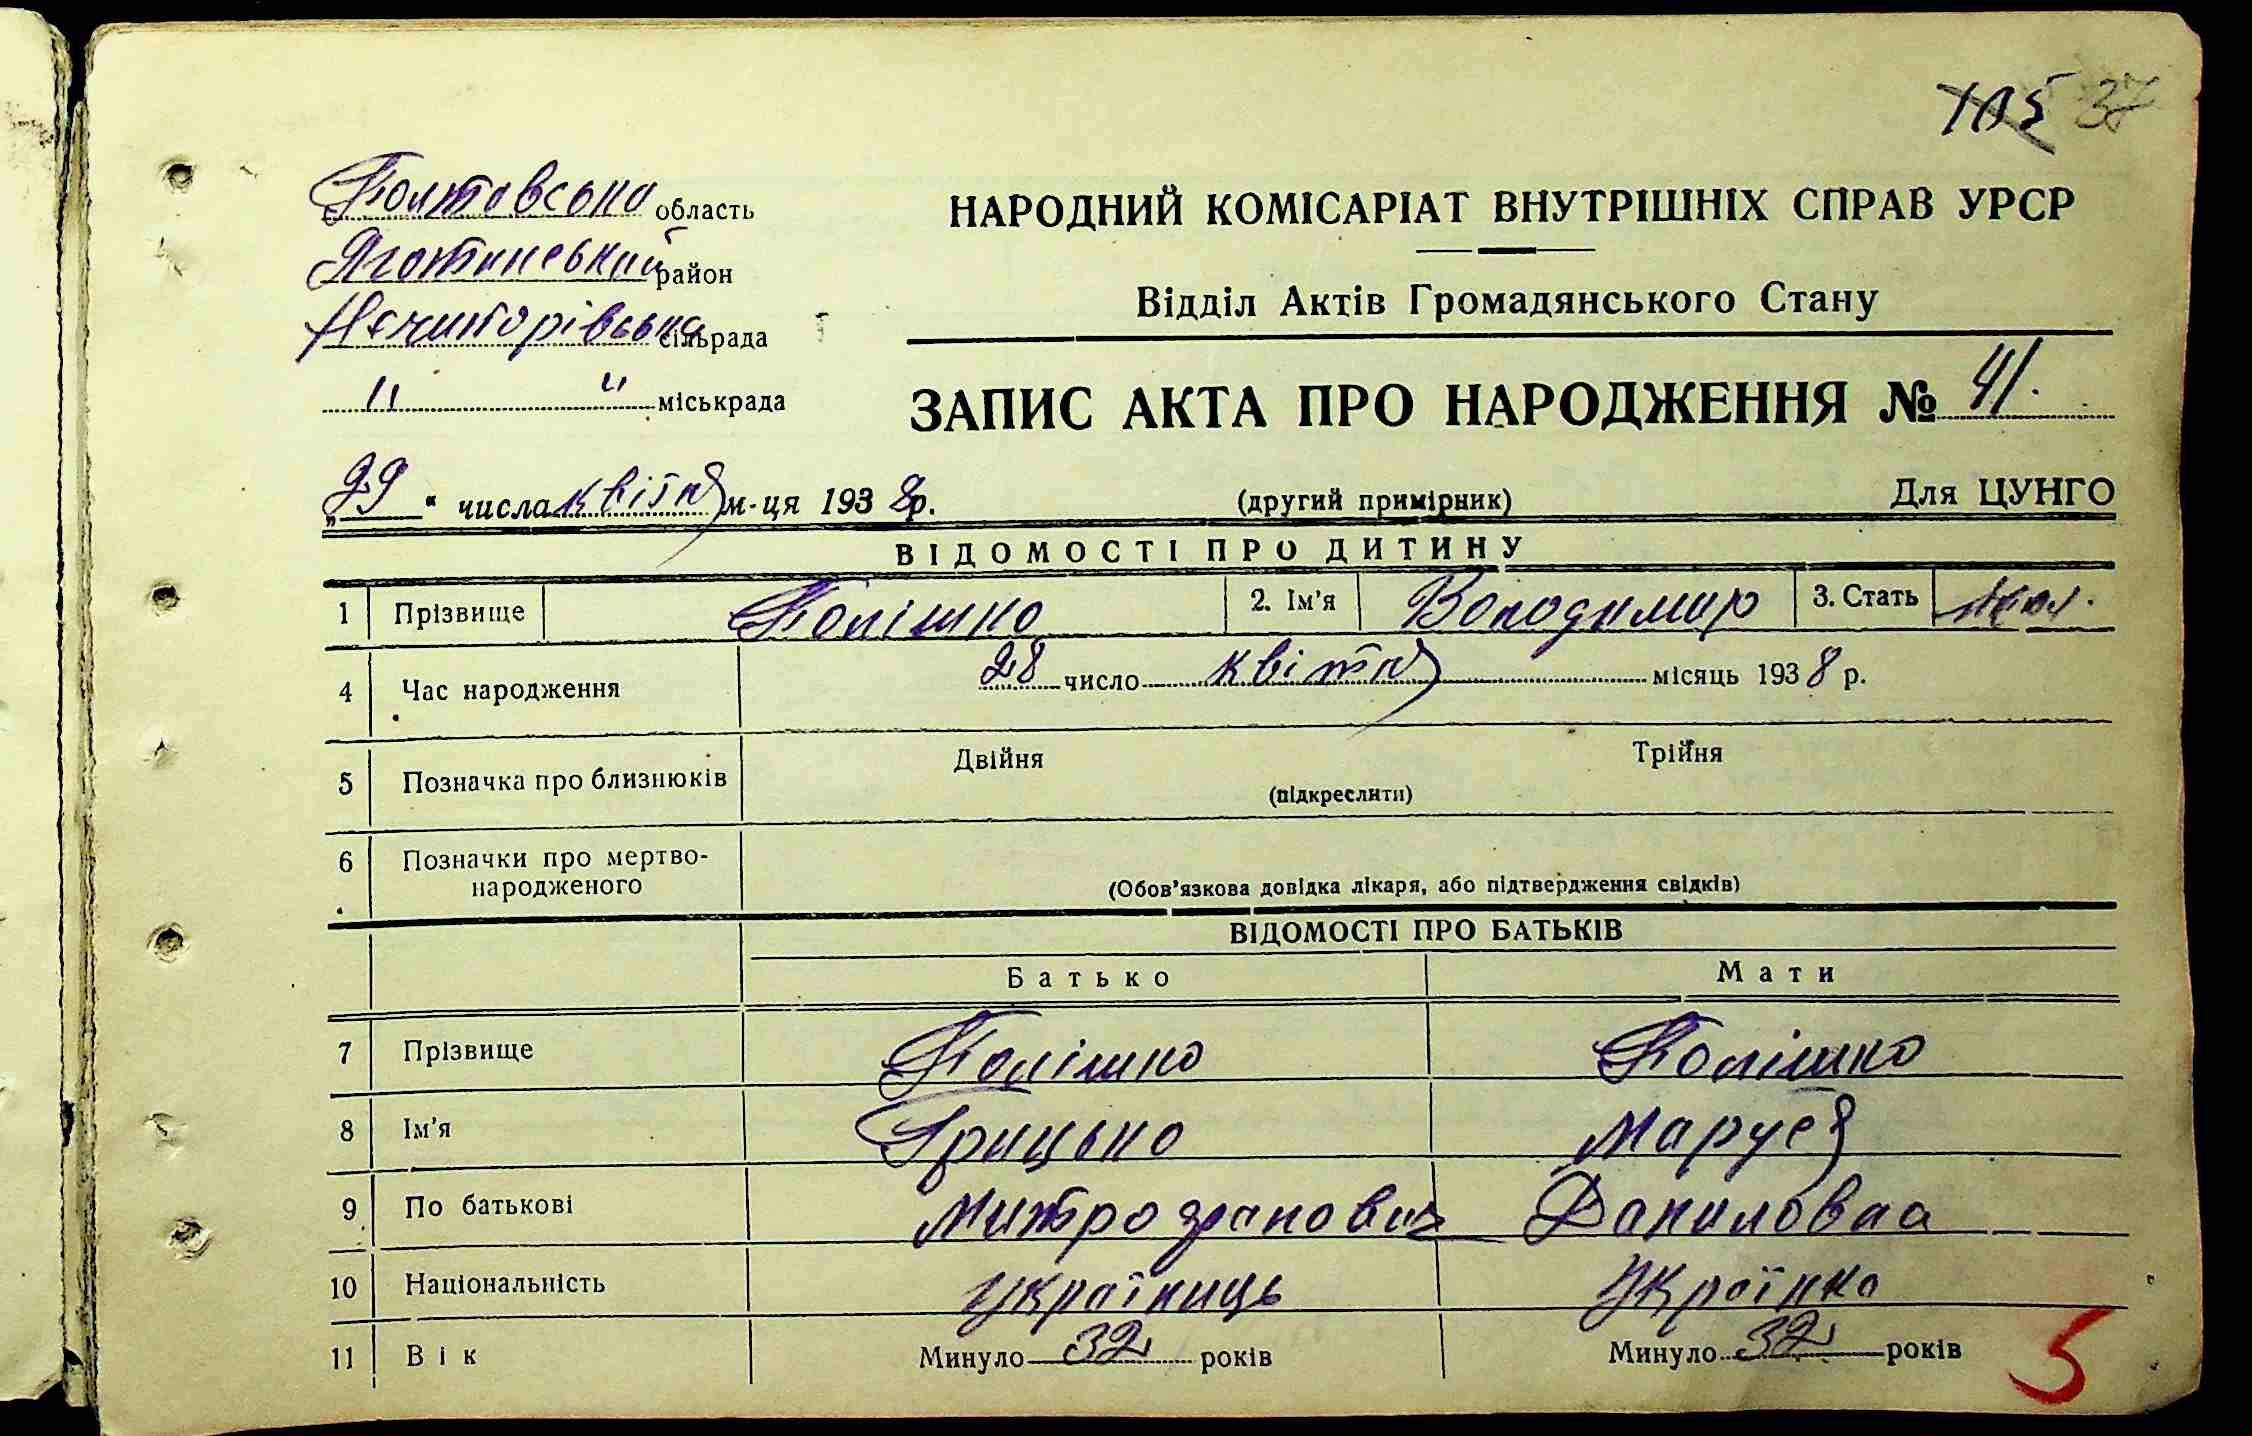 105 37
Полтавська область
Яготинський район
Нечипорівська сільрада
" " міськрада
НАРОДНИЙ КОМІСАРІАТ ВНУТРІШНІХ СПРАВ УРСР
Відділ Актів Громадянського Стану
ЗАПИС АКТА ПРО НАРОДЖЕННЯ № 41.
„29“ числа квітня м-ця 1938 р.
(другий примірник)
Для ЦУНГО
ВІДОМОСТІ ПРО ДИТИНУ
1 Прізвище Полішко 2. Ім'я Володимир 3. Стать чол.
4 Час народження 28 число квітня місяць 1938 р.
5 Позначка про близнюків Двійня Трійня
(підкреслити)
6 Позначки про мертво-
народженого
(Обов'язкова довідка лікаря, або підтвердження свідків)
ВІДОМОСТІ ПРО БАТЬКІВ
Батько Мати
7 Прізвище Полішко Полішко
8 Ім'я Грицько Маруся
9 По батькові Митрофанович Даниловна
10 Національність Українець Українка
11 Вік Минуло 32 років Минуло 32 років
5